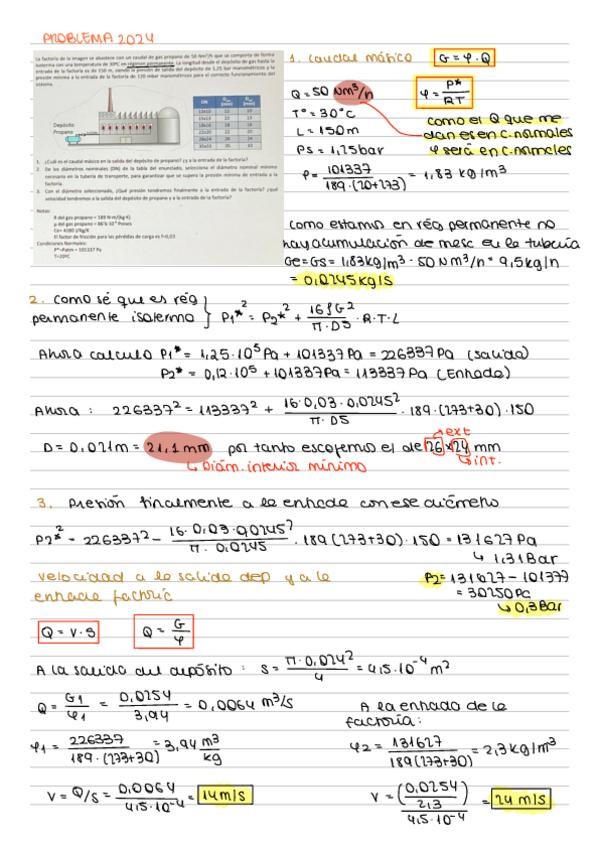 PROBLEMA 2024
La factoría de la imagen se abastece con un caudal de gas propano de 50 Nm³/h que se comporta de forma
isoterma con una temperatura de 30ºC en régimen permanente. La longitud desde el depósito de gas hasta la
entrada de la factoría es de 150 m, siendo la presión de salida del depósito de 1,25 bar manométricos y la
presión mínima a la entrada de la factoría de 120 mbar manométricos para el correcto funcionamiento del
sistema.
Depósito
Propano
DN
1. ¿Cuál es el caudal másico en la salida del depósito de propano? ¿y a la entrada de la factoría?
2. De los diámetros nominales (DN) de la tabla del enunciado, selecciona el diámetro nominal mínimo
necesario en la tubería de transporte, para garantizar que se supera la presión mínima de entrada a la
factoría.
3. Con el diámetro seleccionado, ¿Qué presión tendremos finalmente a la entrada de la factoría? ¿qué
velocidad tendremos a la salida del depósito de propano y a la entrada de la factoría?
Notas:
R del gas propano = 189 N·m/(kg·K)
El factor de fricción para las pérdidas de carga es f=0,03
Condiciones Normales:
P*=Patm = 101337 Pa
T=20ºC
1. Caudal másico G = φ · Q
Q = 50 Nm³/h
T° = 30°C
L = 150m
Ps = 1,25bar
φ = P*/RT
como el Q que me
dan es en C. normales
φ será en C. normales
ρ = 101337/189·(20+273) = 1,83 kg/m3
como estamos en rég permanente no
hay acumulación de masc en la tubería
Ge = Gs = 1,83kg/m³ · 50 Nm³/h = 91,5kg/h
= 0,0245kg/s
2. Como sé que es rég
permanente isotermo } P1*² = P2*² + 16fG²/π·D5 · R·T·L
Ahora calculo P1* = 1,25·10⁵ Pa + 101337 Pa = 226337 Pa (salida)
P2* = 0,12·10⁵ + 101337 Pa = 113337 Pa (Entrada)
Ahora : 226337² = 113337² + 16·0,03·0,0245²/π·D5 · 189·(273+30)·150
D = 0,021m = 21,1 mm por tanto escogemos el de 26x24 mm
ext
int.
↳ Diám. interior mínimo
3. Presión finalmente a la entrada con ese diámetro
P2*² = 226337² - 16·0,03·0,0245²/π·0,0245 · 189(273+30)·150 = 131627 Pa
↳ 1,31Bar
Velocidad a la salida dep y a la
entrada factoría
P2 = 131627 - 101377
= 30250 Pa
↳ 0,3Bar
Q = V·S
Q = G/φ
A la salida del depósito : S = π·0,024²/4 = 4,5·10⁻⁴ m²
Q = G1/φ1 = 0,0254/3,94 = 0,0064 m³/s
A la entrada de la
factoría:
φ1 = 226337/189·(273+30) = 3,94 m³/kg
φ2 = 131627/189(273+30) = 2,3kg/m³
V = Q/S = 0,0064/4,5·10⁻⁴ = 14m/s
V = (0,0254/2,3)/4,5·10⁻⁴ = 24 m/s